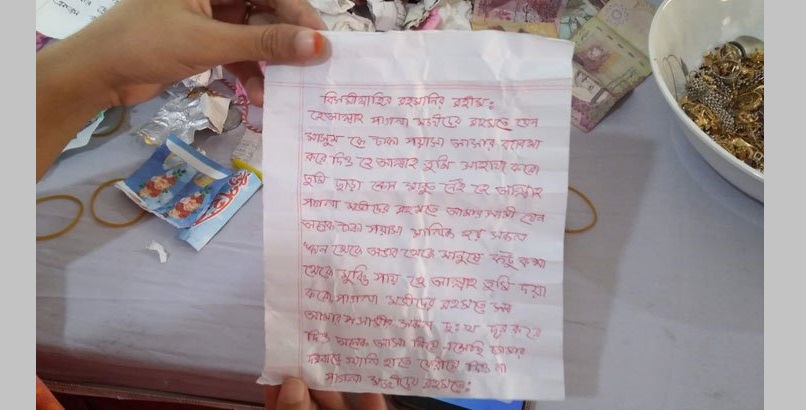 বিসমিল্লাহির রহমানির রহীম:
হে আল্লাহ পাগলা মসজিদের রহমতে যেন
মানুষ কে টাকা পয়সা আমার ব্যবস্থা
করে দিও হে আল্লাহ তুমি সাহায্য করো
তুমি ছাড়া কোন মাবুদ নেই হে আল্লাহ
পাগলা মসজিদের রহমতে আমার স্বামী যেন
অনেক টাকা পয়সা মালিক হয় সকল
থেকে অভাব থেকে মানুষে কটু কথা
থেকে মুক্তি পায় হে আল্লাহ তুমি দয়া
করো পাগলা মসজিদের রহমতে সব
আমার স্বামীর সকল দুঃখ দূর করে
দিও অনেক আশা নিয়ে এসেছি তোমার
দরবারে খালি হাতে ফেরায়ে দিও না
পাগলা মসজিদের রহমতে: